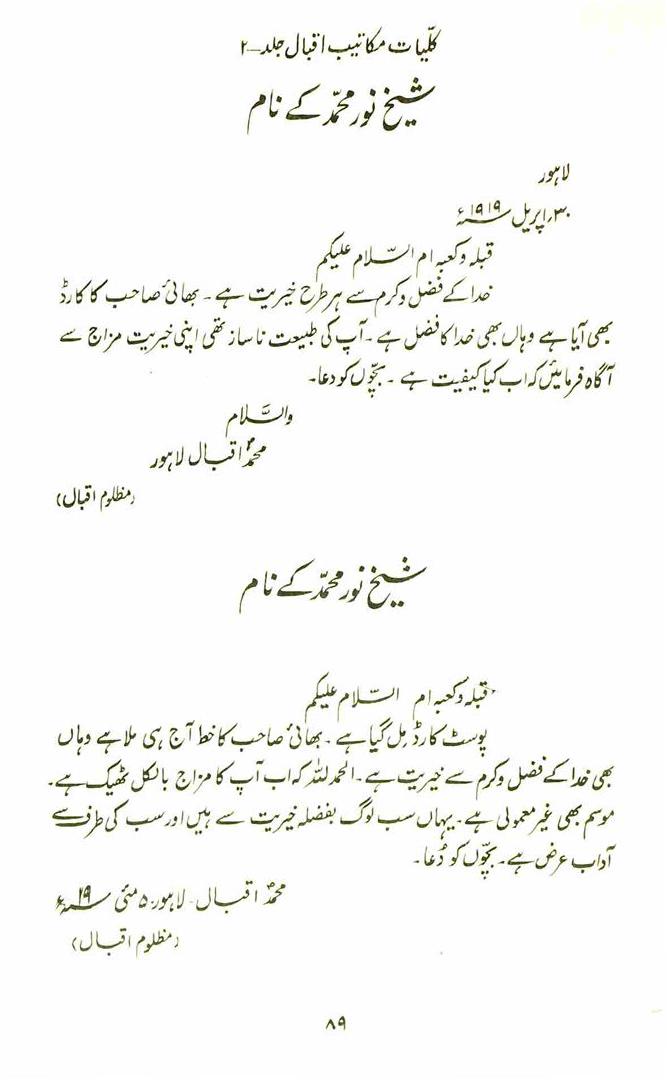 کلّیات مکاتیب اقبال جلد ـ ۲
شیخ نور محمّد کے نام
لاہور
۳۰؍ اپریل ۱۹۱۹ء
قبلہ و کعبہ ام السّلام علیکم
خدا کے فضل و کرم سے ہر طرح خیریت ہے۔ بھائی صاحب کا کارڈ
بھی آیا ہے وہاں بھی خدا کا فضل ہے۔ آپ کی طبیعت ناساز تھی اپنی خیریت مزاج سے
آگاہ فرمائیں کہ اب کیا کیفیت ہے۔ بچّوں کو دعا۔
والسَّلام
محمدؐ اقبال لاہور
(مظلوم اقبال)
شیخ نور محمّد کے نام
قبلہ و کعبہ ام السّلام علیکم
پوسٹ کارڈ مِل گیا ہے۔ بھائی صاحب کا خط آج ہی ملا ہے وہاں
بھی خدا کے فضل و کرم سے خیریت ہے۔ الحمد للہ کہ اب آپ کا مزاج بالکل ٹھیک ہے۔
موسم بھی غیر معمولی ہے۔ یہاں سب لوگ بفضلہ خیریت سے ہیں اور سب کی طرف سے
آداب عرض ہے۔ بچّوں کو دُعا۔
محمدؐ اقبال۔ لاہور ۵ مئی ۱۹ء
(مظلوم اقبال)
۸۹